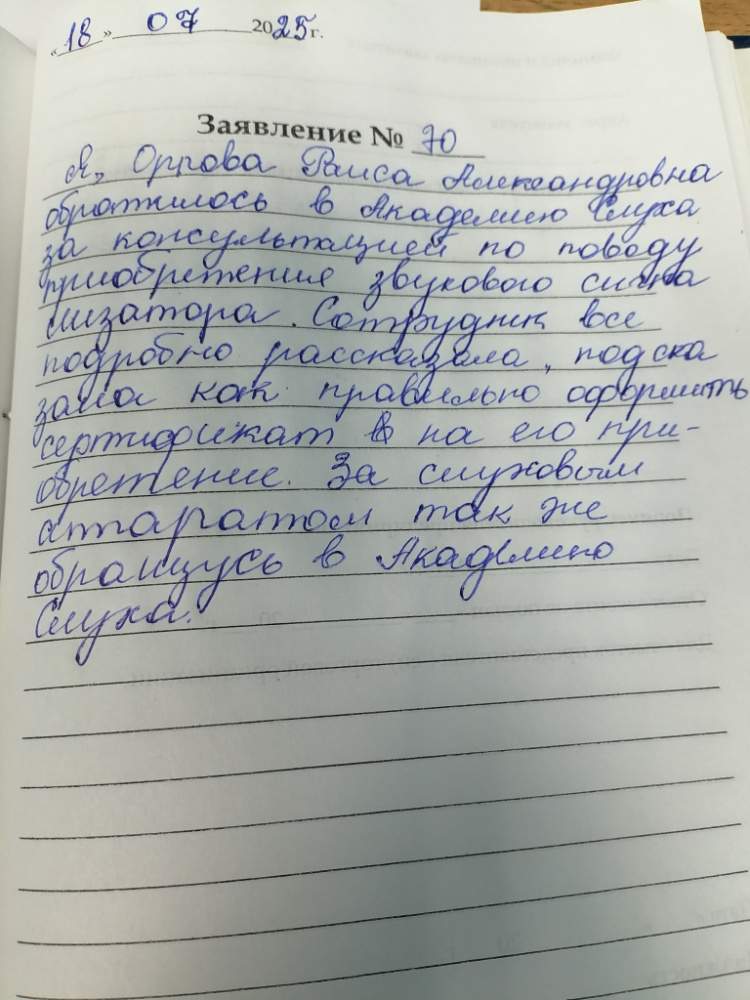 «18» 07 2025 г.
Заявление № 70
Я, Орлова Раиса Александровна
обратилось в Академию Слуха
за консультацией по поводу
приобретения звукового сигна
лизатора. Сотрудник все
подробно рассказала, подска
зала как правильно оформить
сертификат в на его при-
обретение. За слуховым
аппаратом так же
обращусь в Академию
Слуха.